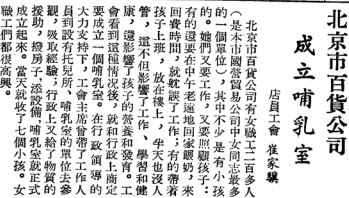 北京市百貨公司
成立哺乳室
店員工會 崔家驥
北京市百貨公司有女職工二百多人
(是本市國營貿易公司中女同志最多
的一個單位),其中不少是有小孩
的。她們又要工作,又要照顧孩子:
有的還要在中午老遠地回家餵奶,來
回費時間,就躭誤了工作;有的帶着
孩子上班,放在樓上,半天也沒人
管,這不但影響了工作、學習和健
康,還影響了孩子的營養和發育。工
會看到這種情况後,就和行政上商定
要成立一個哺乳室。在行政領導的
大力支持下,工會主席曾帶了工作人
員到設有托兒所、哺乳室的單位去參
觀,吸取經驗;行政上又給了物質的
援助,撥房子、添設備,哺乳室就正式
成立起來。當天就收了七個小孩。女
職工們都很高興。